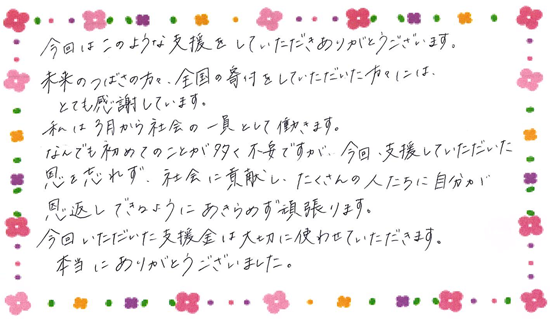 今回はこのような支援をしていただきありがとうございます。
未来のつばさの方々、全国の寄付をしていただいた方々には、
とても感謝しています。
私は3月から社会の一員として働きます。
なんでも初めてのことが多く不安ですが、今回、支援していただいた
恩を忘れず、社会に貢献し、たくさんの人たちに自分が
恩返しできるようにあきらめず頑張ります。
今回いただいた支援金は大切に使わせていただきます。
本当にありがとうございました。